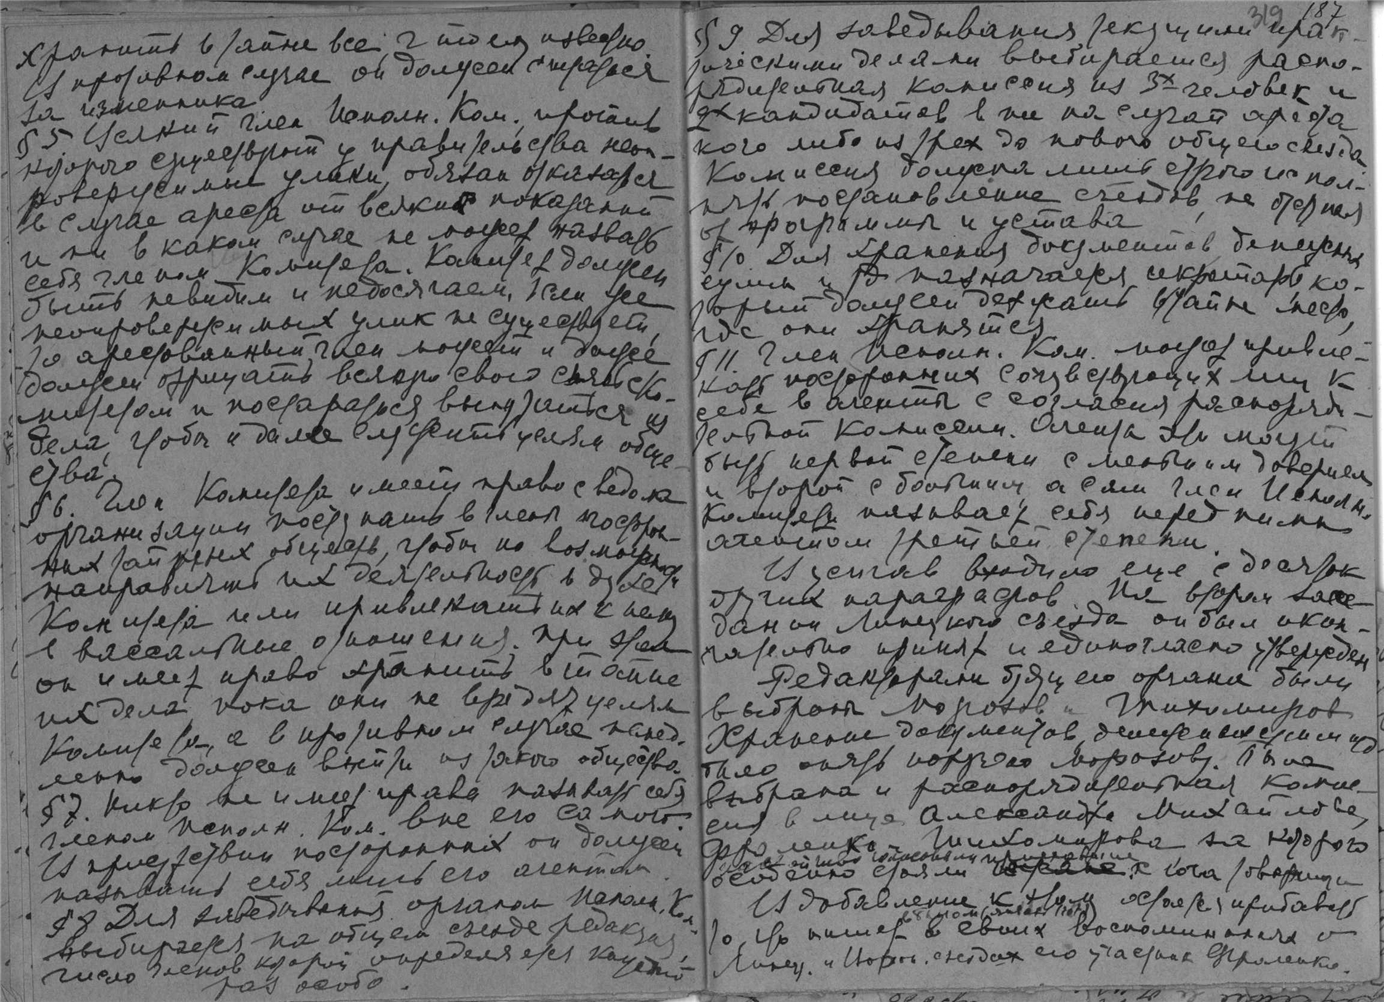 хранить в тайне все, что ему известно.
В противном случае он должен считаться
за изменника
§ 5 Всякий член Исполн. Ком., против
которого существуют у правительства неоп-
ровержимые улики, обязан отказаться
в случае ареста от всяких показаний
и ни в каком случае не может назвать
себя членом Комитета. Комитет должен
быть невидим и недосягаем. Если же
неопровержимых улик не существует,
то арестованный член может и даже
должен отрицать всякую свою связь с Ко-
митетом и постараться выпутаться из
дела, чтобы и далее служить целям обще-
ства.
§ 6. Член Комитета имеет право с ведома
организации поступать в члены посторон-
них тайных обществ, чтобы по возможности
направлять их деятельность в духе
Комитета или привлекать их к нему
в вассальные отношения. При этом
он имеет право хранить в тайне
их дела пока они не вредят целям
Комитета, а в противном случае немед-
ленно должен выйти из такого общества.
§ 7. Никто не имеет права назвать себя
членом Исполн. Ком. вне его самого.
В присутствии посторонних он должен
называть себя лишь его агентом.
§ 8 Для заведывания органом Исполн. Ком.
выбирается на общем съезде редакция,
число членов которой определяется каждый
раз особо.
319 187
§ 9 Для заведывания текущими прак-
тическими делами выбирается распо-
рядительная комиссия из 3х человек и
2х кандидатов в нее на случай ареста
кого либо из трех до нового общего съезда
Комиссия должна лишь строго испол-
нять постановление съездов, не отступая
от программы и устава
§ 10 Для хранения документов, денежных
сумм и т.д. назначается секретарь ко-
торый должен держать в тайне место,
где они хранятся
§ 11 Член Исполн. Ком. может привле-
кать посторонних сочувствующих лиц к
себе в агенты с согласия распоряди-
тельной комиссии. Агенты эти могут
быть первой степени с меньшим доверием
и второй с большим, а сам член Исполн.
Комитета называет себя перед ними
агентом третьей степени.
В устав входило еще с десяток
других параграфов. На втором засе-
дании Липецкого съезда он был окон-
чательно принят и единогласно утвержден
Редакторами будущего органа были
выбраны Морозов и Тихомиров
Хранение документов, денежных сумм и т.д.
было опять поручено Морозову. Была
выбрана и распорядительная комис-
сия в лице Александра Михайлова,
Фроленко и Тихомирова за которого
особенно стояли его товарищи
В добавление к этому хочется прибавить
то, что пишет в своих воспоминаниях о
Липец. и Ворон. съездах его участник Фроленко.